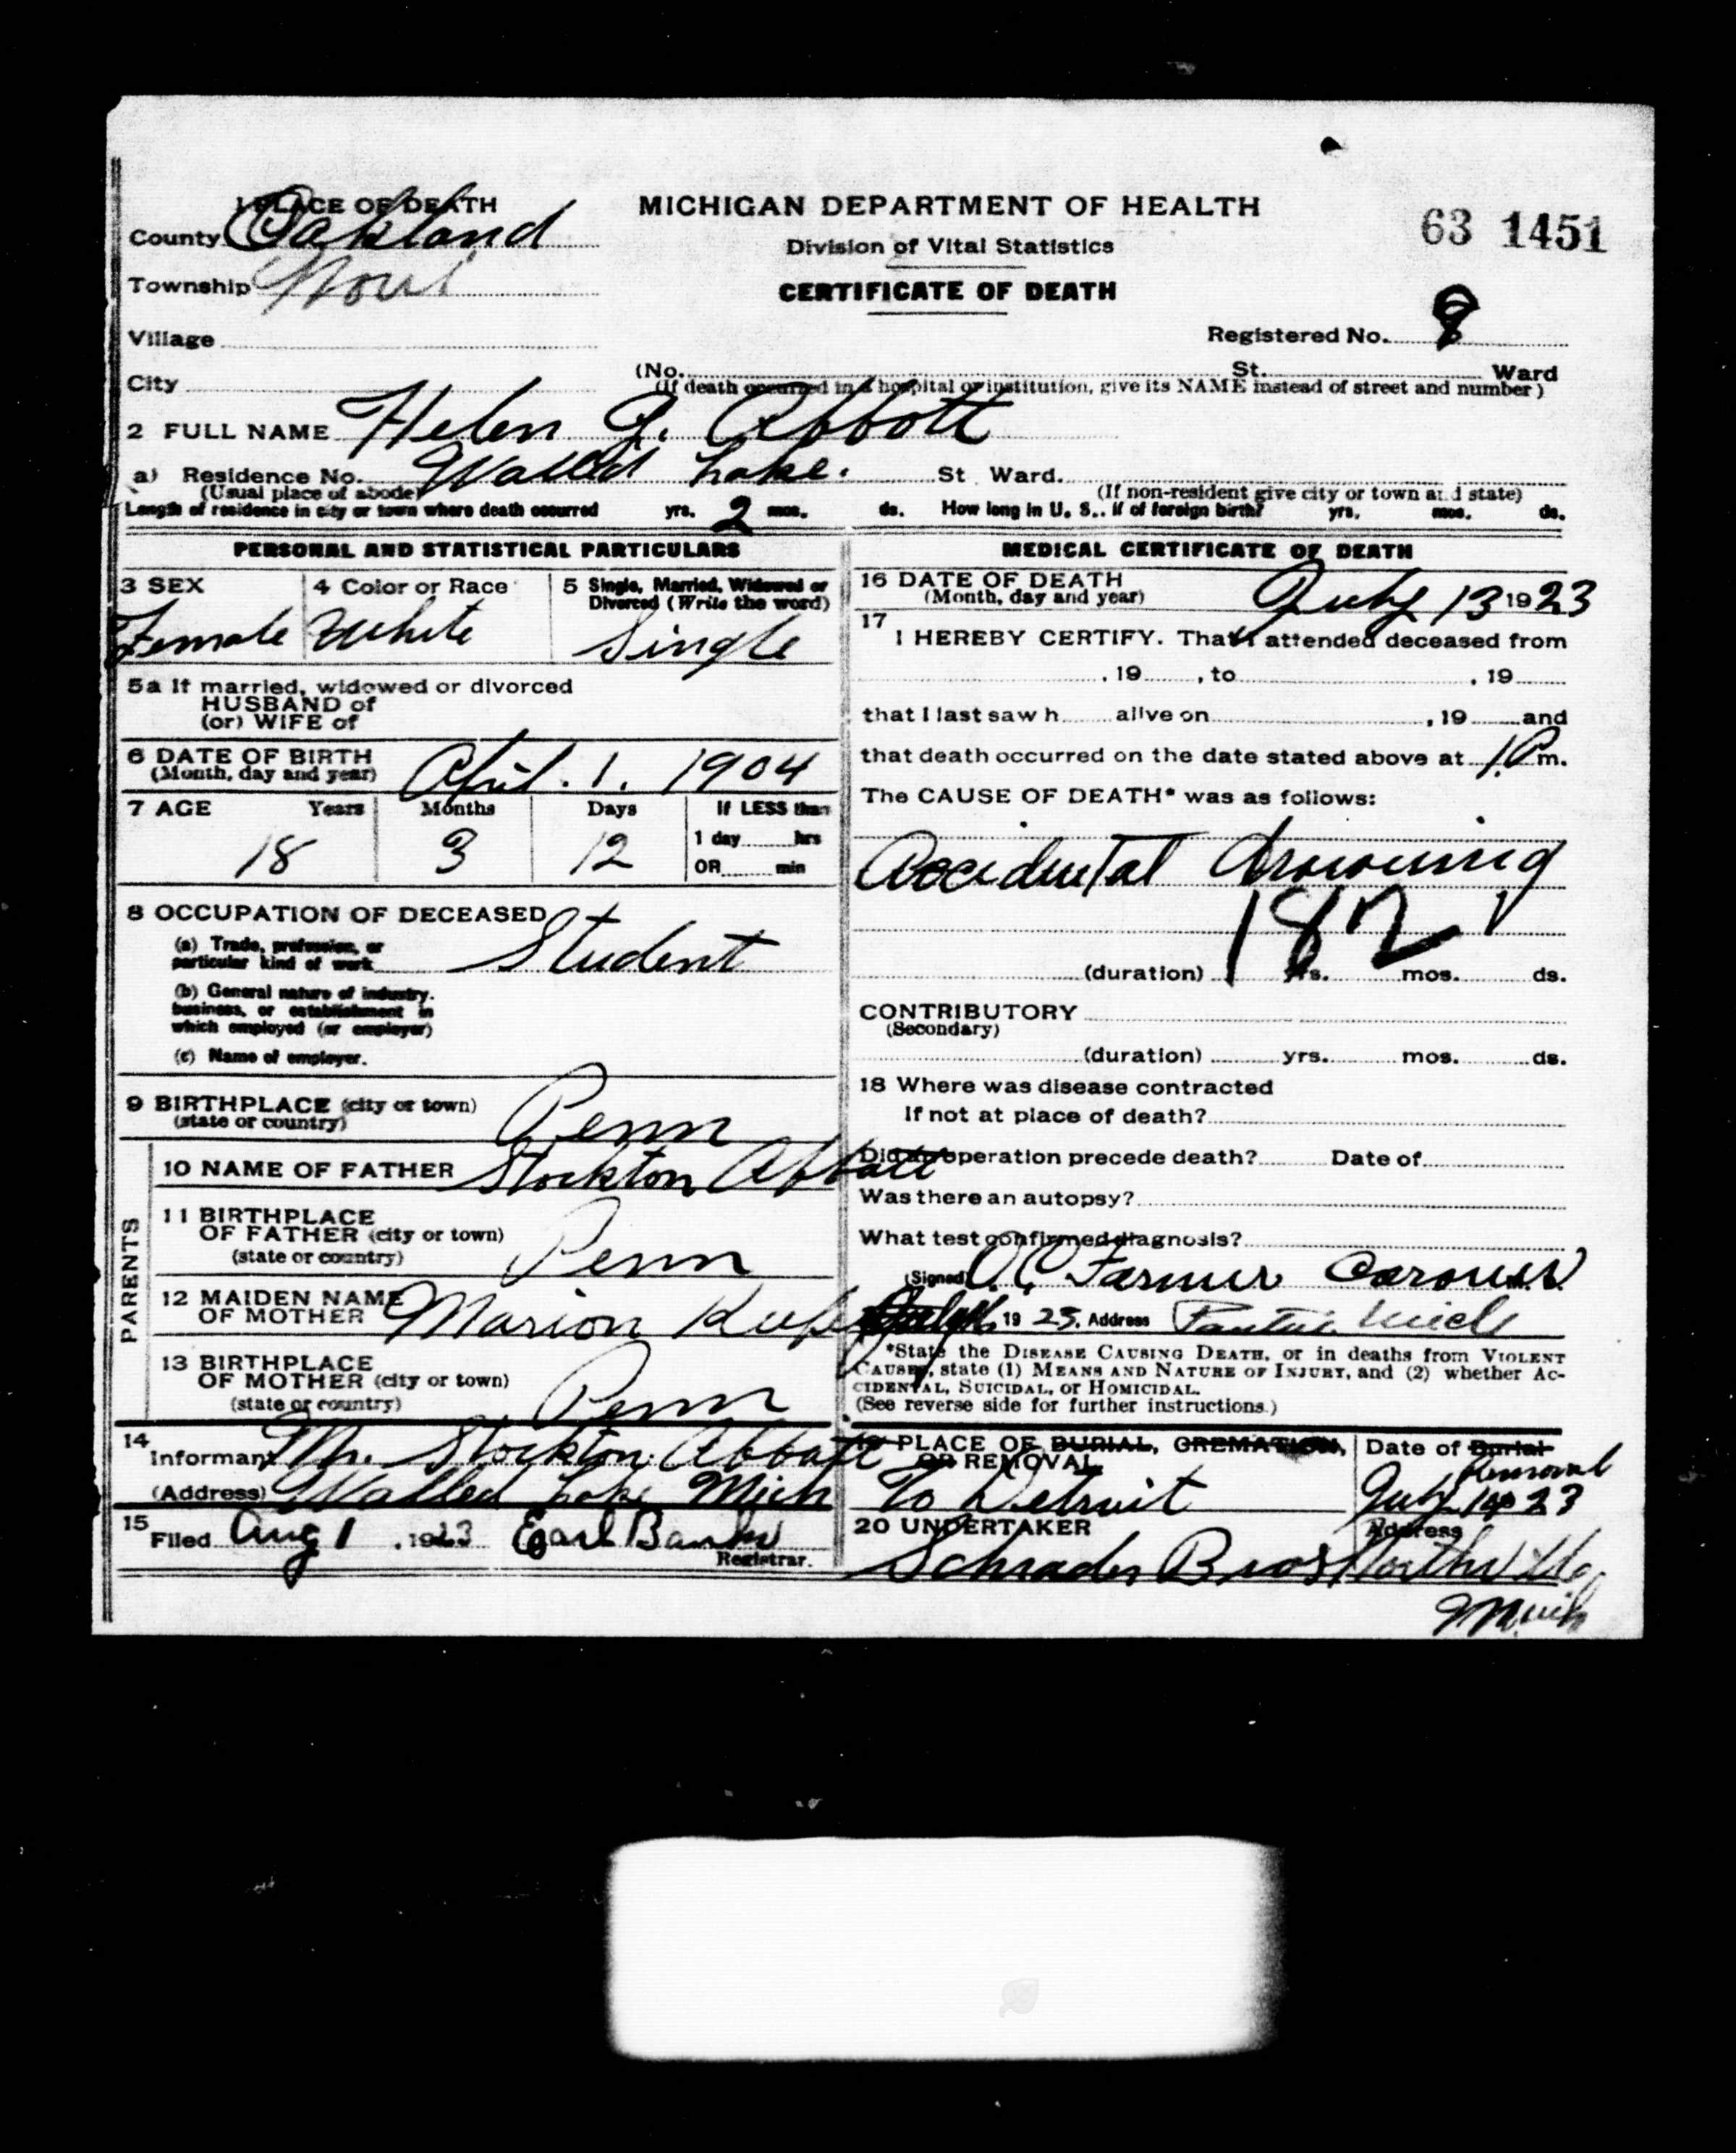 1 PLACE OF DEATH
MICHIGAN DEPARTMENT OF HEALTH
Division of Vital Statistics
CERTIFICATE OF DEATH
63 1451
County Oakland
Township Novi
Village
Registered No. 9
City
(No. St. Ward
(If death occurred in a hospital or institution, give its NAME instead of street and number)
2 FULL NAME Helen J. Abbott
a) Residence No. Walled Lake. St Ward.
(Usual place of abode) (If non-resident give city or town and state)
Length of residence in city or town where death occurred yrs. 2 mos. ds. How long in U. S., if of foreign birth? yrs. mos. ds.
PERSONAL AND STATISTICAL PARTICULARS
3 SEX 4 Color or Race 5 Single, Married, Widowed or
Divorced (Write the word)
Female White Single
5a If married, widowed or divorced
HUSBAND of
(or) WIFE of
6 DATE OF BIRTH
(Month, day and year) April. 1. 1904
7 AGE Years Months Days If LESS than
1 day hrs
18 3 12
OR min
8 OCCUPATION OF DECEASED
(a) Trade, profession, or
particular kind of work Student
(b) General nature of industry.
business, or establishment in
which employed (or employer)
(c) Name of employer.
9 BIRTHPLACE (city or town)
(state or country) Penn
PARENTS
10 NAME OF FATHER Stockton Abbott
11 BIRTHPLACE
OF FATHER (city or town)
(state or country) Penn
12 MAIDEN NAME
OF MOTHER Marion
13 BIRTHPLACE
OF MOTHER (city or town)
(state or country) Penn
14
Informant Mr. Stockton Abbott
(Address) Walled Lake Mich
15
Filed Aug 1 , 1923 Earl Banks
Registrar.
MEDICAL CERTIFICATE OF DEATH
16 DATE OF DEATH
(Month, day and year) July 13 1923
17
I HEREBY CERTIFY. That I attended deceased from
, 19 , to , 19
that I last saw h alive on , 19 and
that death occurred on the date stated above at 1 P m.
The CAUSE OF DEATH* was as follows:
Accidental drowning
182
(duration) yrs. mos. ds.
CONTRIBUTORY
(Secondary)
(duration) yrs. mos. ds.
18 Where was disease contracted
If not at place of death?
Did an operation precede death? Date of
Was there an autopsy?
What test confirmed diagnosis?
(Signed) O. C. Farmer Coroner
July 1923. Address Pontiac Mich
*State the DISEASE CAUSING DEATH, or in deaths from VIOLENT
CAUSES, state (1) MEANS AND NATURE OF INJURY, and (2) whether AC-
CIDENTAL, SUICIDAL, or HOMICIDAL.
(See reverse side for further instructions.)
19 PLACE OF BURIAL, CREMATION,
OR REMOVAL
To Detroit
Date of Burial
Removal
July 14 1923
20 UNDERTAKER
Schrader Bros
Address
Northville
Mich